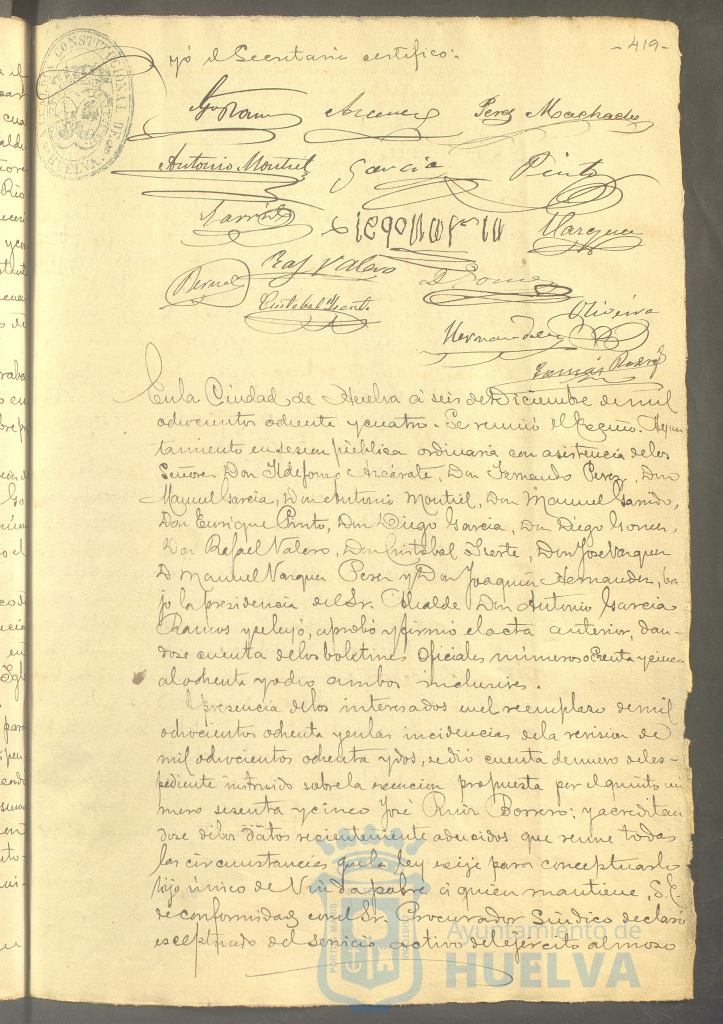 -419-
AYUNTAMIENTO CONSTITUCIONAL DE HUELVA
yo el Secretario certifico:
Azcarate Perez Machado
Antonio Montiel Garcia Pinto
Garrido Diego Garcia Vazquez
Bernal Raf Valero D Gomez
Cristobal Yzerte Oliveira
Hernandez
Tomás Rodrg
En la Ciudad de Huelva á seis de Diciembre de mil
ochocientos ochenta y cuatro. Se reunió el Excmo. Ayun
tamiento en sesion pública ordinaria con asistencia de los
Señores Don Ildefonso Azcárate, Don Fernando Perez, Don
Manuel Garcia, Don Antonio Montiel, Don Manuel Garrido,
Don Enrique Pinto, Don Diego Garcia, Don Diego Gomez,
Don Rafael Valero, Don Cristobal Don Jose Vazquez
D Manuel Vazquez Perez y Don Joaquin Hernandez, ba
jo la presidencia del Sr. Alcalde Don Antonio Garcia
Ramos y se leyó, aprobó y firmó el acta anterior, dan-
dose cuenta de los boletines Oficiales números ochenta y cinco
al ochenta y ocho ambos inclusives.
A presencia de los interesados en el reemplazo de mil
ochocientos ochenta y en las incidencias de la revision de
mil ochocientos ochenta y dos, se dió cuenta de nuevo del es-
pediente instruido sobre la esencion propuesta por el quinto nú
mero sesenta y cinco José Ruiz Borrero; y acreditan
dose de los datos recientemente aducidos que reune todas
las circunstancias que la ley exije para conceptuarlo
hijo único de Viuda pobre á quien mantiene, S. E.
de conformidad con el Sr. Procurador Sindico declaró
esceptuado del servicio activo del ejército al mozo
Ayuntamiento de
HUELVA